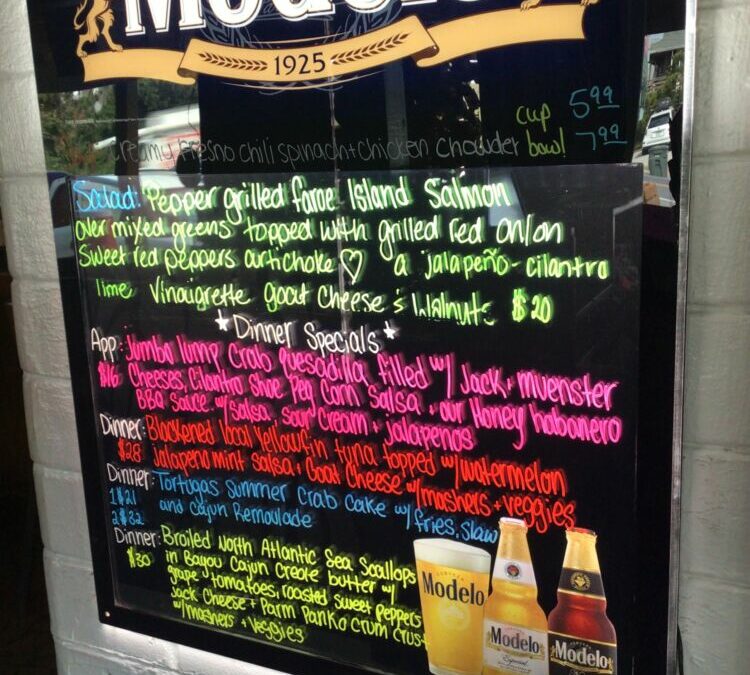 Modelo
1925
creamy fresno chili spinach + chicken chowder
cup 5.99
bowl 7.99
Salad: Pepper grilled faroe Island Salmon
over mixed greens topped with grilled red onion
Sweet red peppers artichoke ♡ a jalapeño-cilantro
lime Vinaigrette goat Cheese & Walnuts $20
*Dinner Specials*
App: Jumbo lump Crab quesadilla filled w/ Jack + muenster
$16 Cheeses, Cilantro Shoe Peg Corn Salsa + our Honey habanero
BBQ Sauce w/ salsa sour cream + jalapeños
Dinner: Blackened local Yellowfin tuna topped w/ watermelon
$28 Jalapeno mint salsa + Goat Cheese w/ mashers + veggies
Dinner: Tortugas Summer Crab Cake w/ fries, slaw
1 $21 and Cajun Remoulade
2 $32
Dinner: Broiled North Atlantic Sea Scallops
$30 in Bayou Cajun Creole butter w/
grape tomatoes, roasted sweet peppers
Jack Cheese + Parm Panko crum crust
w/ mashers + veggies
Modelo
Modelo
Especial
Modelo